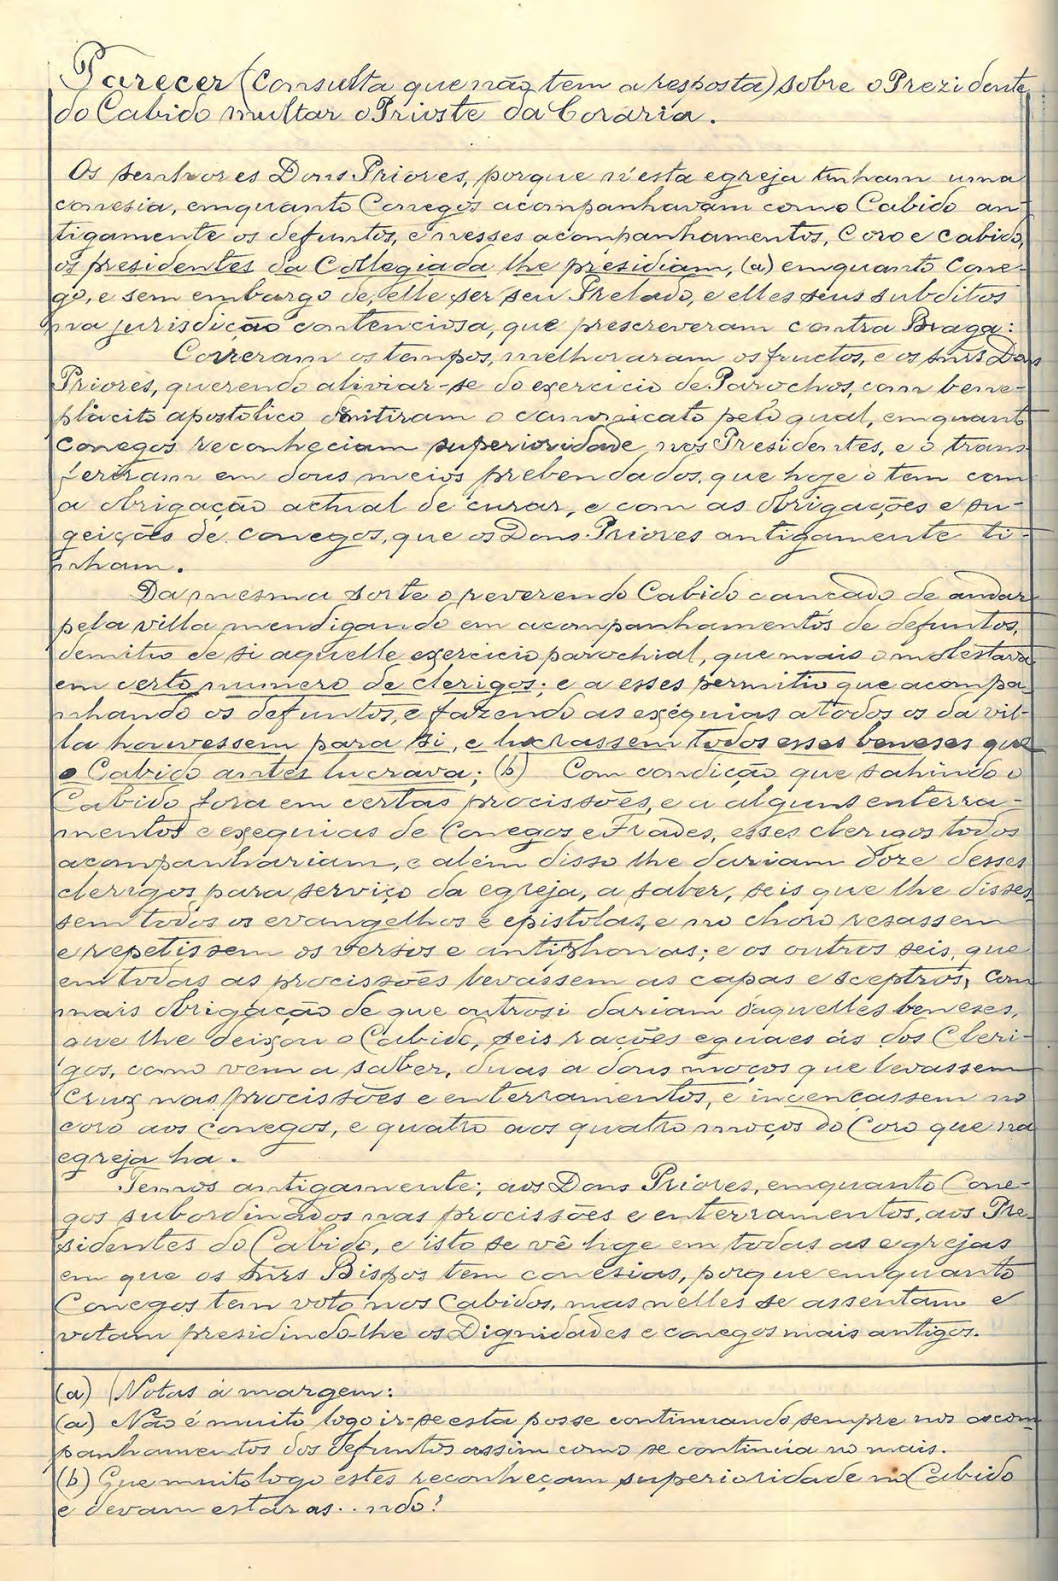 Parecer (Consulta que não tem a resposta) sobre o Prezidente
do Cabido multar o Prioste da Coraria.
Os senhores Dons Priores, porque n'esta egreja tinham uma
conesia, emquanto Conegos acompanhavam com o Cabido an-
tigamente os defuntos, e nesses acompanhamentos, Coro e Cabido,
os presidentes da Collegiada lhe presidiam, (a) emquanto Cone-
go, e sem embargo de, elle ser seu Prelado, e elles seus subditos
na jurisdicção contenciosa, que prescreveram contra Braga:
Correram os tempos, melhoraram os fructos, e os snrs Dons
Priores, querendo aliviar-se do exercicio de Parochos, com bene-
placito apostolico demitiram o canonicato pelo qual, emquanto
conegos reconheciam superioridade nos Presidentes, e o trans-
feriram em dous meios prebendados, que hoje o tem com
a obrigação actual de curar, e com as obrigações e su-
geições de conegos, que os Dons Priores antigamente ti-
nham.
Da mesma sorte o reverendo Cabido cançado de andar
pela villa mendigando em acompanhamentos de defuntos,
demitio de si aquelle exercicio parochial, que mais o molestava
em certo numero de clerigos; e a esses permitio que acompa-
nhando os defuntos, e fazendo as exéquias a todos os da vil-
la houvessem para si, e lucrassem todos esses beneses que
o Cabido antes lucrava; (b) Com condição que sahindo o
Cabido fora em certas procissões, e a alguns enterra-
mentos e exequias de Conegos e Frades, esses clerigos todos
acompanhariam, e além disso lhe dariam doze desses
clerigos para serviço da egreja, a saber, seis que lhe disses-
sem todos os evangelhos e epistolas, e no choro resassem
e repetissem os versos e antiphonas; e os outros seis, que
em todas as procissões levassem as capas e sceptros, com
mais obrigação de que outrosi dariam d'aquelles beneses,
que lhe deixou o Cabido, seis rações eguaes ás dos Cleri-
gos, como vem a saber, duas a dous moços que levassem
Cruz nas procissões e enterramentos, e incençassem no
coro aos conegos, e quatro aos quatro moços do Coro que na
egreja ha.
Temos antigamente; aos Dons Priores, emquanto Cone-
gos subordinados nas procissões e enterramentos, aos Pre-
sidentes do Cabido, e isto se vê hoje em todas as egrejas
em que os snrs Bispos tem conesias, porque emquanto
Conegos tem voto nos Cabidos, mas nelles se assentam e
votam presidindo-lhe os Dignidades e conegos mais antigos.
(a) Notas á margem:
(a) Não é muito logo ir-se esta posse continuando sempre nos acom
panhamentos dos defuntos assim como se continúa no mais.
(b) Que muito logo estes reconheçam superioridade no Cabido
e devam estar as...ndo!